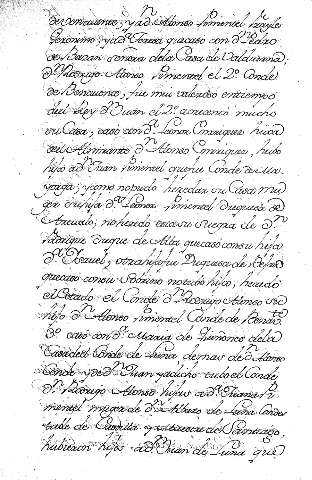 de Benavente; y a dⁿ Alonso Pimentel
Geronimo; y a dª Teresa que caso con dⁿ Pedro
de Bazan señora de la Casa de Valduerna;
dⁿ Rodrigo Alonso Pimentel el 2º Conde
de Benavente, fue mui valeroso en tiempo
del Rey dⁿ Juan el 2º aumentó mucho
su Casa, caso con dª Leonor Enrriquez hija
del Almirante dⁿ Alonso Enrriquez, hubo
hijo a dⁿ Juan Pimentel que fue Conde de Ma
yorga; y como no pudo heredar su Casa mu
ger su hija dª Leonor Pimentel duquesa de
Arevalo; no heredo esta su suegra de dⁿ
Fadrique duque de Alba que caso con su hija
dª Isavel, otra hija fue Duquesa de
que caso con su Sobrino no hubo hijo, heredó
el Estado el Conde dⁿ Rodrigo Alonso su
hijo dⁿ Alonso Pimentel Conde de Benavᵗᵉ
3º caso con dª Maria de Quiñones de la
Casa del Conde de Luna, demas de dⁿ Alonso
Conde y de dⁿ Juan ya dicho tubo el Conde
dⁿ Rodrigo Alonso hijas a dª Juana Pi
mentel muger de dⁿ Albaro de Luna Condes
table de Castilla y Maestre de Santiago,
hubieron hijos a dⁿ Juan de Luna que